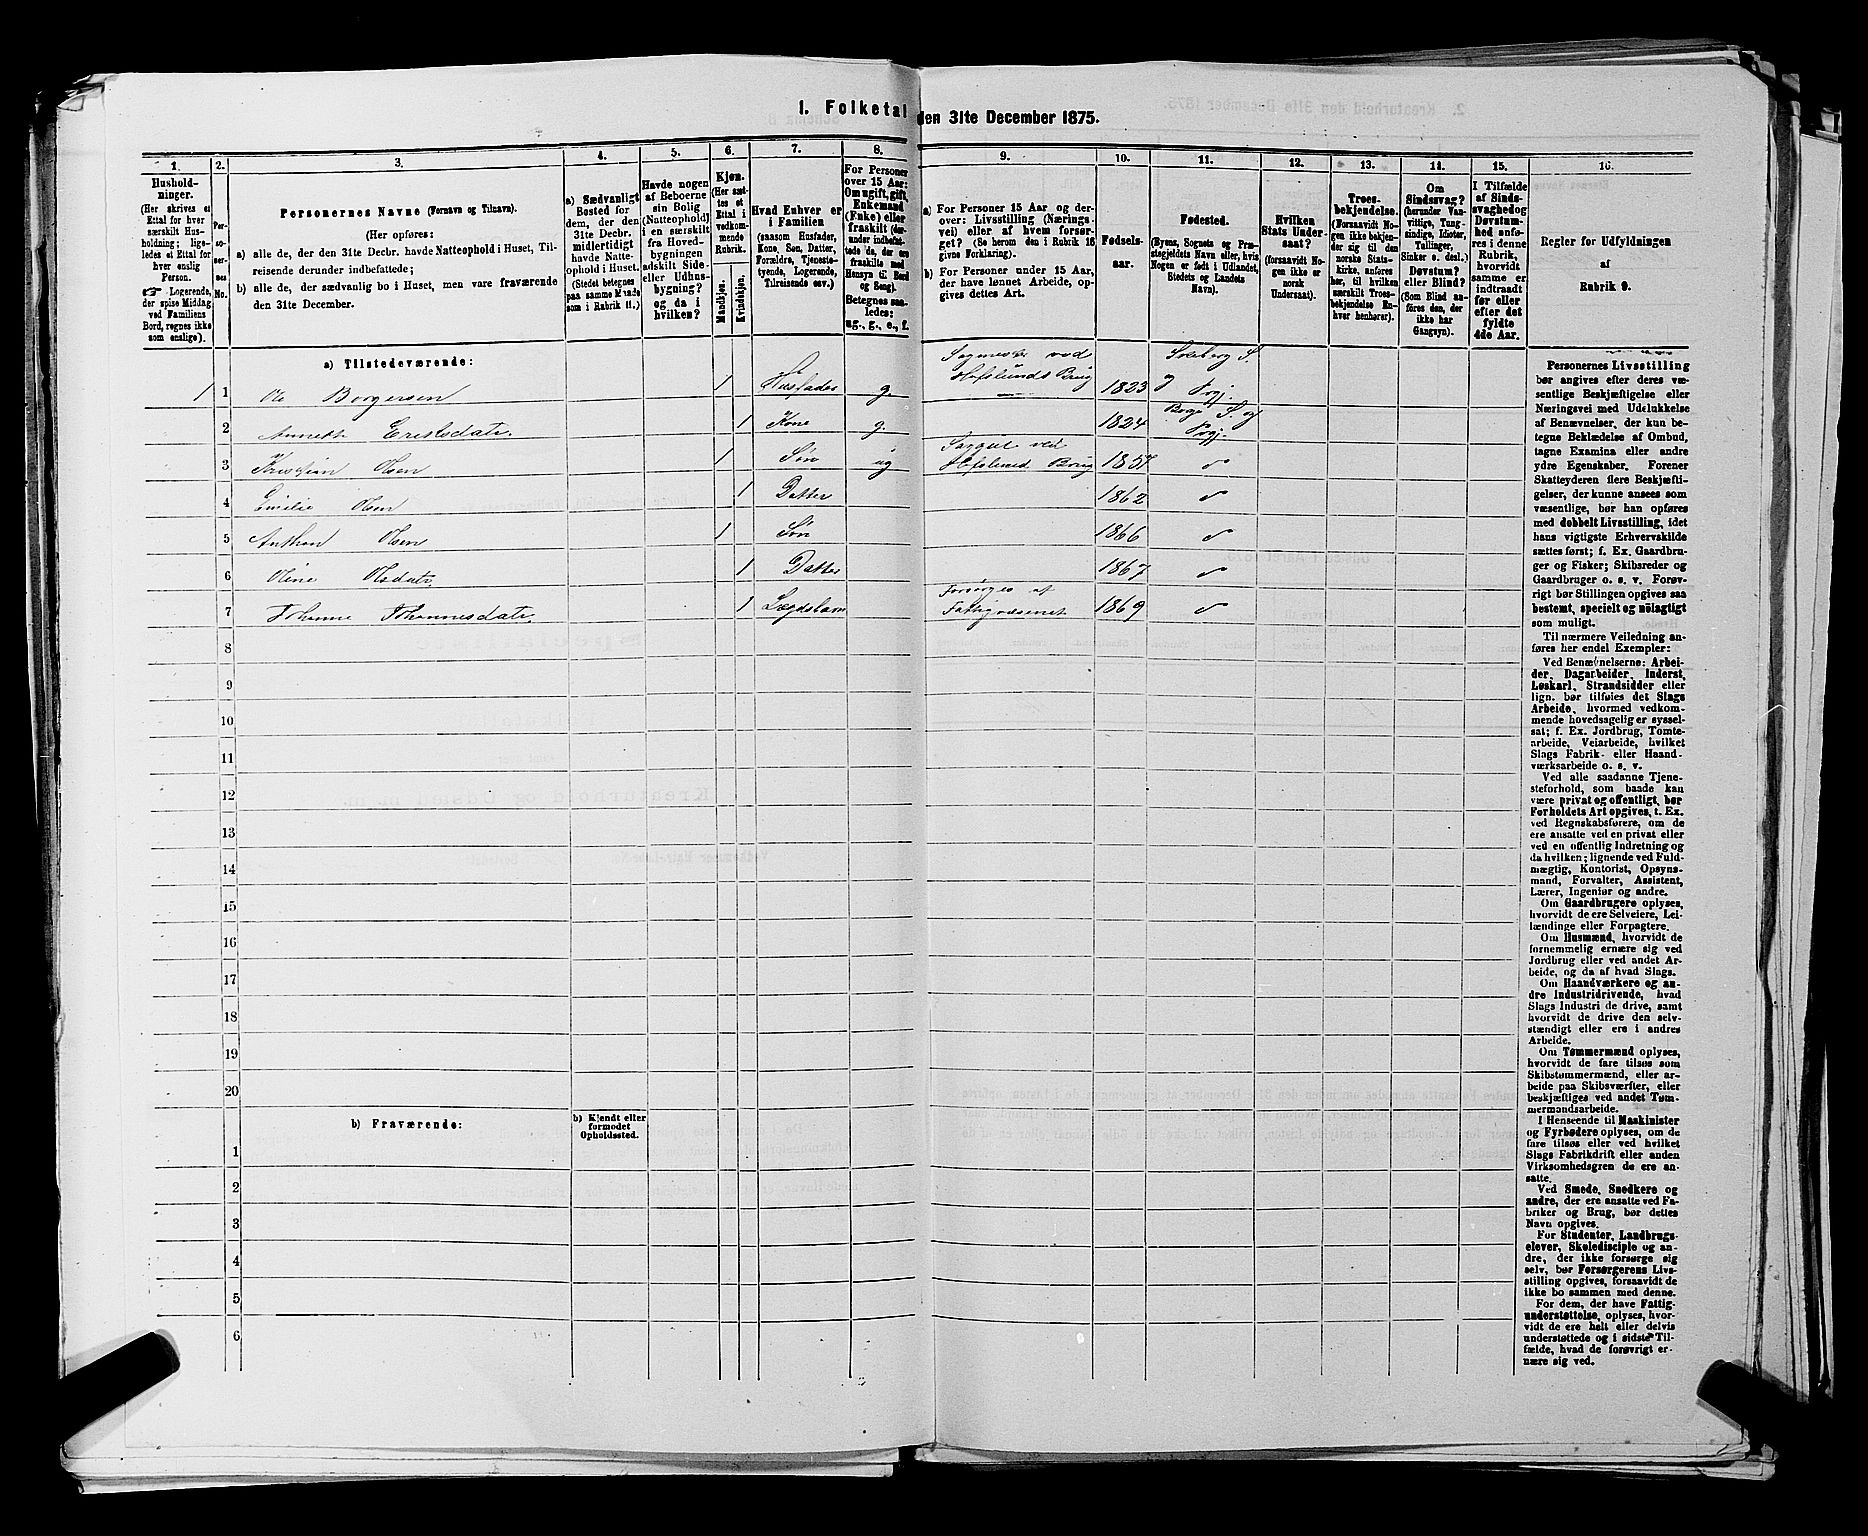 1. Folketal den 31te December 1875.
1. 2. 3. 4. 5. 6. 7. 8. 9. 10. 11. 12. 13. 14. 15. 16.
Hushold-
ninger.
(Her skrives et
Ettal for hver
særskilt Hus-
holdning; lige-
ledes et Ettal for
hver enslig
Person.
Logerende,
der spise Middag
ved Familiens
Bord, regnes ikke
som enslige).
Per-
so-
ner-
nes
No.
Personernes Navne (Fornavn og Tilnavn).
(Her opføres:
a) alle de, der den 31te Decbr. havde Natteophold i Huset, Til-
reisende derunder indbefattede;
b) alle de, der sædvanlig bo i Huset, men vare fraværende
den 31te December.
a) Sædvanligt
Bosted for
dem, der den
31te Decbr.
midlertidigt
havde Natte-
ophold i Huset.
(Stedet betegnes
paa samme Maade
som i Rubrik 11.)
Havde nogen
af Beboerne
sin Bolig
(Natteophold)
i en særskilt
fra Hoved-
bygningen
adskilt Side-
eller Udhus-
bygning?
og da i
hvilken?
Kjøn.
(Her sæt-
tes et
Ettal i
vedkom-
mende
Rubrik.
Mandkjøn.
Kvindekjøn.
Hvad Enhver er
i Familien
(saasom Husfader,
Kone, Søn, Datter,
Forældre, Tjeneste-
tyende, Logerende,
Tilreisende osv.)
For Personer
over 15 Aar:
Om ugift, gift,
Enkemand
(Enke) eller
fraskilt (der-
under indbefat-
tede de, der ere
fraskilte med
Hensyn til Bord
og Seng).
Betegnes saa-
ledes:
ug., g., e., f.
a) For Personer 15 Aar og der-
over: Livsstilling (Nærings-
vei) eller af hvem forsør-
get? (Se herom den i Rubrik 16
givne Forklaring).
b) For Personer under 15 Aar,
der have lønnet Arbeide, op-
gives dettes Art.
Fødsels-
aar.
Fødested.
(Byens, Sognets og Præ-
stegjeldets Navn eller, hvis
Nogen er født i Udlandet,
Stedets og Landets
Navn).
Hvilken
Stats Under-
saat?
(forsaavidt No-
gen ikke er
norsk
Undersaat).
Troes-
bekjendelse.
(Forsaavidt No-
gen ikke bekjen-
der sig til den
norske Stats-
kirke, anføres
her, til hvilken
særskilt Troes-
bekjendelse En-
hver henhører).
Om
Sindssvag?
(herunder Van-
vittige, Tung-
sindige, Idioter,
Tullinger,
Sinker o. desl.)
Døvstum?
eller Blind?
(Som Blind an-
føres den, der
ikke har
Gangsyn).
I Tilfælde
af Sinds-
svaghed og
Døvstum-
hed anfø-
res i denne
Rubrik,
hvorvidt
samme er
indtraadt
før eller
efter det
fyldte
4de Aar.
Regler for Udfyldningen
af
Rubrik 9.
a) Tilstedeværende:
1 1 Ole Borgersen 1 Husfader g. Sagmester ved Hafslunds Brug 1823 Skeberg S. og Prgj.
2 Annette Eriksdatr. 1 Kone g. 1824 Borge S. og Prgj.
3 Kristian Olsen 1 Søn ug Saggut ved Hafslund Brug 1857 do
4 Emilie Olsen 1 Datter 1862 do
5 Anthon Olsen 1 Søn 1866 do
6 Oline Olsdatr. 1 Datter 1867 do
7 Johanne Johannesdatr. 1 Lægdsbarn Forsørges af Fattigvæsenet 1869 do
8
9
10
11
12
13
14
15
16
17
18
19
20
b) Fraværende:
b) Kjendt eller
formodet
Opholdssted.
1
2
3
4
5
6
Personernes Livsstilling
bør angives efter deres væ-
sentlige Beskjæftigelse eller
Næringsvei med Udelukkelse
af Benævnelser, der kun be-
tegne Beklædelse af Ombud,
tagne Examina eller andre
ydre Egenskaber. Forener
Skatteyderen flere Beskjæfti-
gelser, der kunne ansees som
væsentlige, bør han opføres
med dobbelt Livsstilling, idet
hans vigtigste Erhvervskilde
sættes først; f. Ex. Gaardbru-
ger og Fisker; Skibsreder og
Gaardbruger o. s. v. Forøv-
rigt bør Stillingen opgives saa
bestemt, specielt og nøiagtigt
som muligt.
Til nærmere Veiledning an-
føres her endel Exempler:
Ved Benævnelserne: Arbei-
der, Dagarbeider, Inderst,
Løskarl, Strandsidder eller
lign. bør tilføies det Slags
Arbeide, hvormed vedkom-
mende hovedsagelig er syssel-
sat; f. Ex. Jordbrug, Tomte-
arbeide, Veiarbeide, hvilket
Slags Fabrik- eller Haand-
værksarbeide o. s. v.
Ved alle saadanne Tjene-
steforhold, som baade kan
være privat og offentligt, bør
Forholdets Art opgives, t. Ex.
ved Regnskabsførere, om de
ere ansatte ved en privat eller
ved en offentlig Indretning og
da hvilken; lignende ved Fuld-
mægtig, Kontorist, Opsyns-
mand, Forvalter, Assistent,
Lærer, Ingeniør og andre.
Om Gaardbrugere oplyses,
hvorvidt de ere Selveiere, Lei-
lændinge eller Forpagtere.
Om Husmænd, hvorvidt de
fornemmelig ernære sig ved
Jordbrug eller ved andet Ar-
beide, og da af hvad Slags.
Om Haandværkere og an-
dre Industridrivende, hvad
Slags Industri de drive, samt
hvorvidt de drive den selv-
stændigt eller ere i andres
Arbeide.
Om Tømmermænd oplyses,
hvorvidt de fare tilsøs som
Skibstømmermænd, eller ar-
beide paa Skibsværfter, eller
beskjæftiges ved andet Tøm-
mermandsarbeide.
I Henseende til Maskinister
og Fyrbødere oplyses, om de
fare tilsøs eller ved hvilket
Slags Fabrikdrift eller anden
Virksomhedsgren de ere an-
satte.
Ved Smede, Snedkere og
andre, der ere ansatte ved Fa-
briker og Brug, bør dettes
Navn opgives.
For Studenter, Landbrugs-
elever, Skoledisciple og an-
dre, der ikke forsørge sig
selv, bør Forsørgerens Livs-
stilling opgives, forsaavidt de
ikke bo sammen med denne.
For dem, der have Fattig-
understøttelse, oplyses, hvor-
vidt de ere helt eller delvis
understøttede og i sidste Til-
fælde, hvad de forøvrigt er-
nære sig ved.